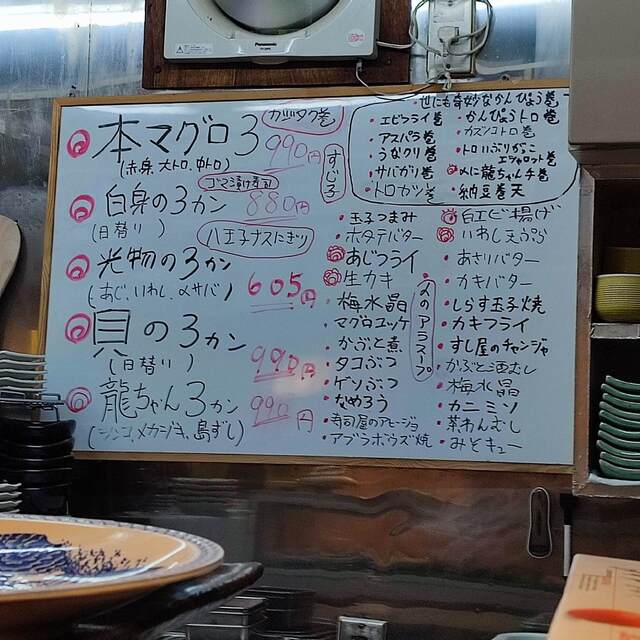 Panasonic
本マグロ3
(赤身、大トロ、中トロ)
990円
ガリタク巻
すじ子
ゴマ漬け寿司
白身の3カン
(日替り)
880円
八王子ナスにぎり
光物の3カン
(あじ、いわし、〆サバ)
605円
貝の3カン
(日替り)
990円
龍ちゃん3カン
990円
世にも奇妙なかんぴょう巻
・エビフライ巻
・アスパラ巻
・うなクリ巻
・サバガリ巻
・トロカツ巻
・かんぴょうトロ巻
・トロいぶりがこ
エシャロット巻
龍ちゃんチ巻
・納豆巻天
・玉子つまみ
・ホタテバター
あじフライ
・生カキ
・梅水晶
・マグロユッケ
・かぶと煮
・タコぶつ
・ゲソぶつ
・なめろう
・寿司屋のアヒージョ
・アブラボウズ焼
本日のアラスープ
白エビ揚げ
いわし天ぷら
・あさりバター
・カキバター
・しらす玉子焼
・カキフライ
・すし屋のチャンジャ
・かぶと酒むし
・梅水晶
・カニミソ
・茶わんむし
・みそキュー